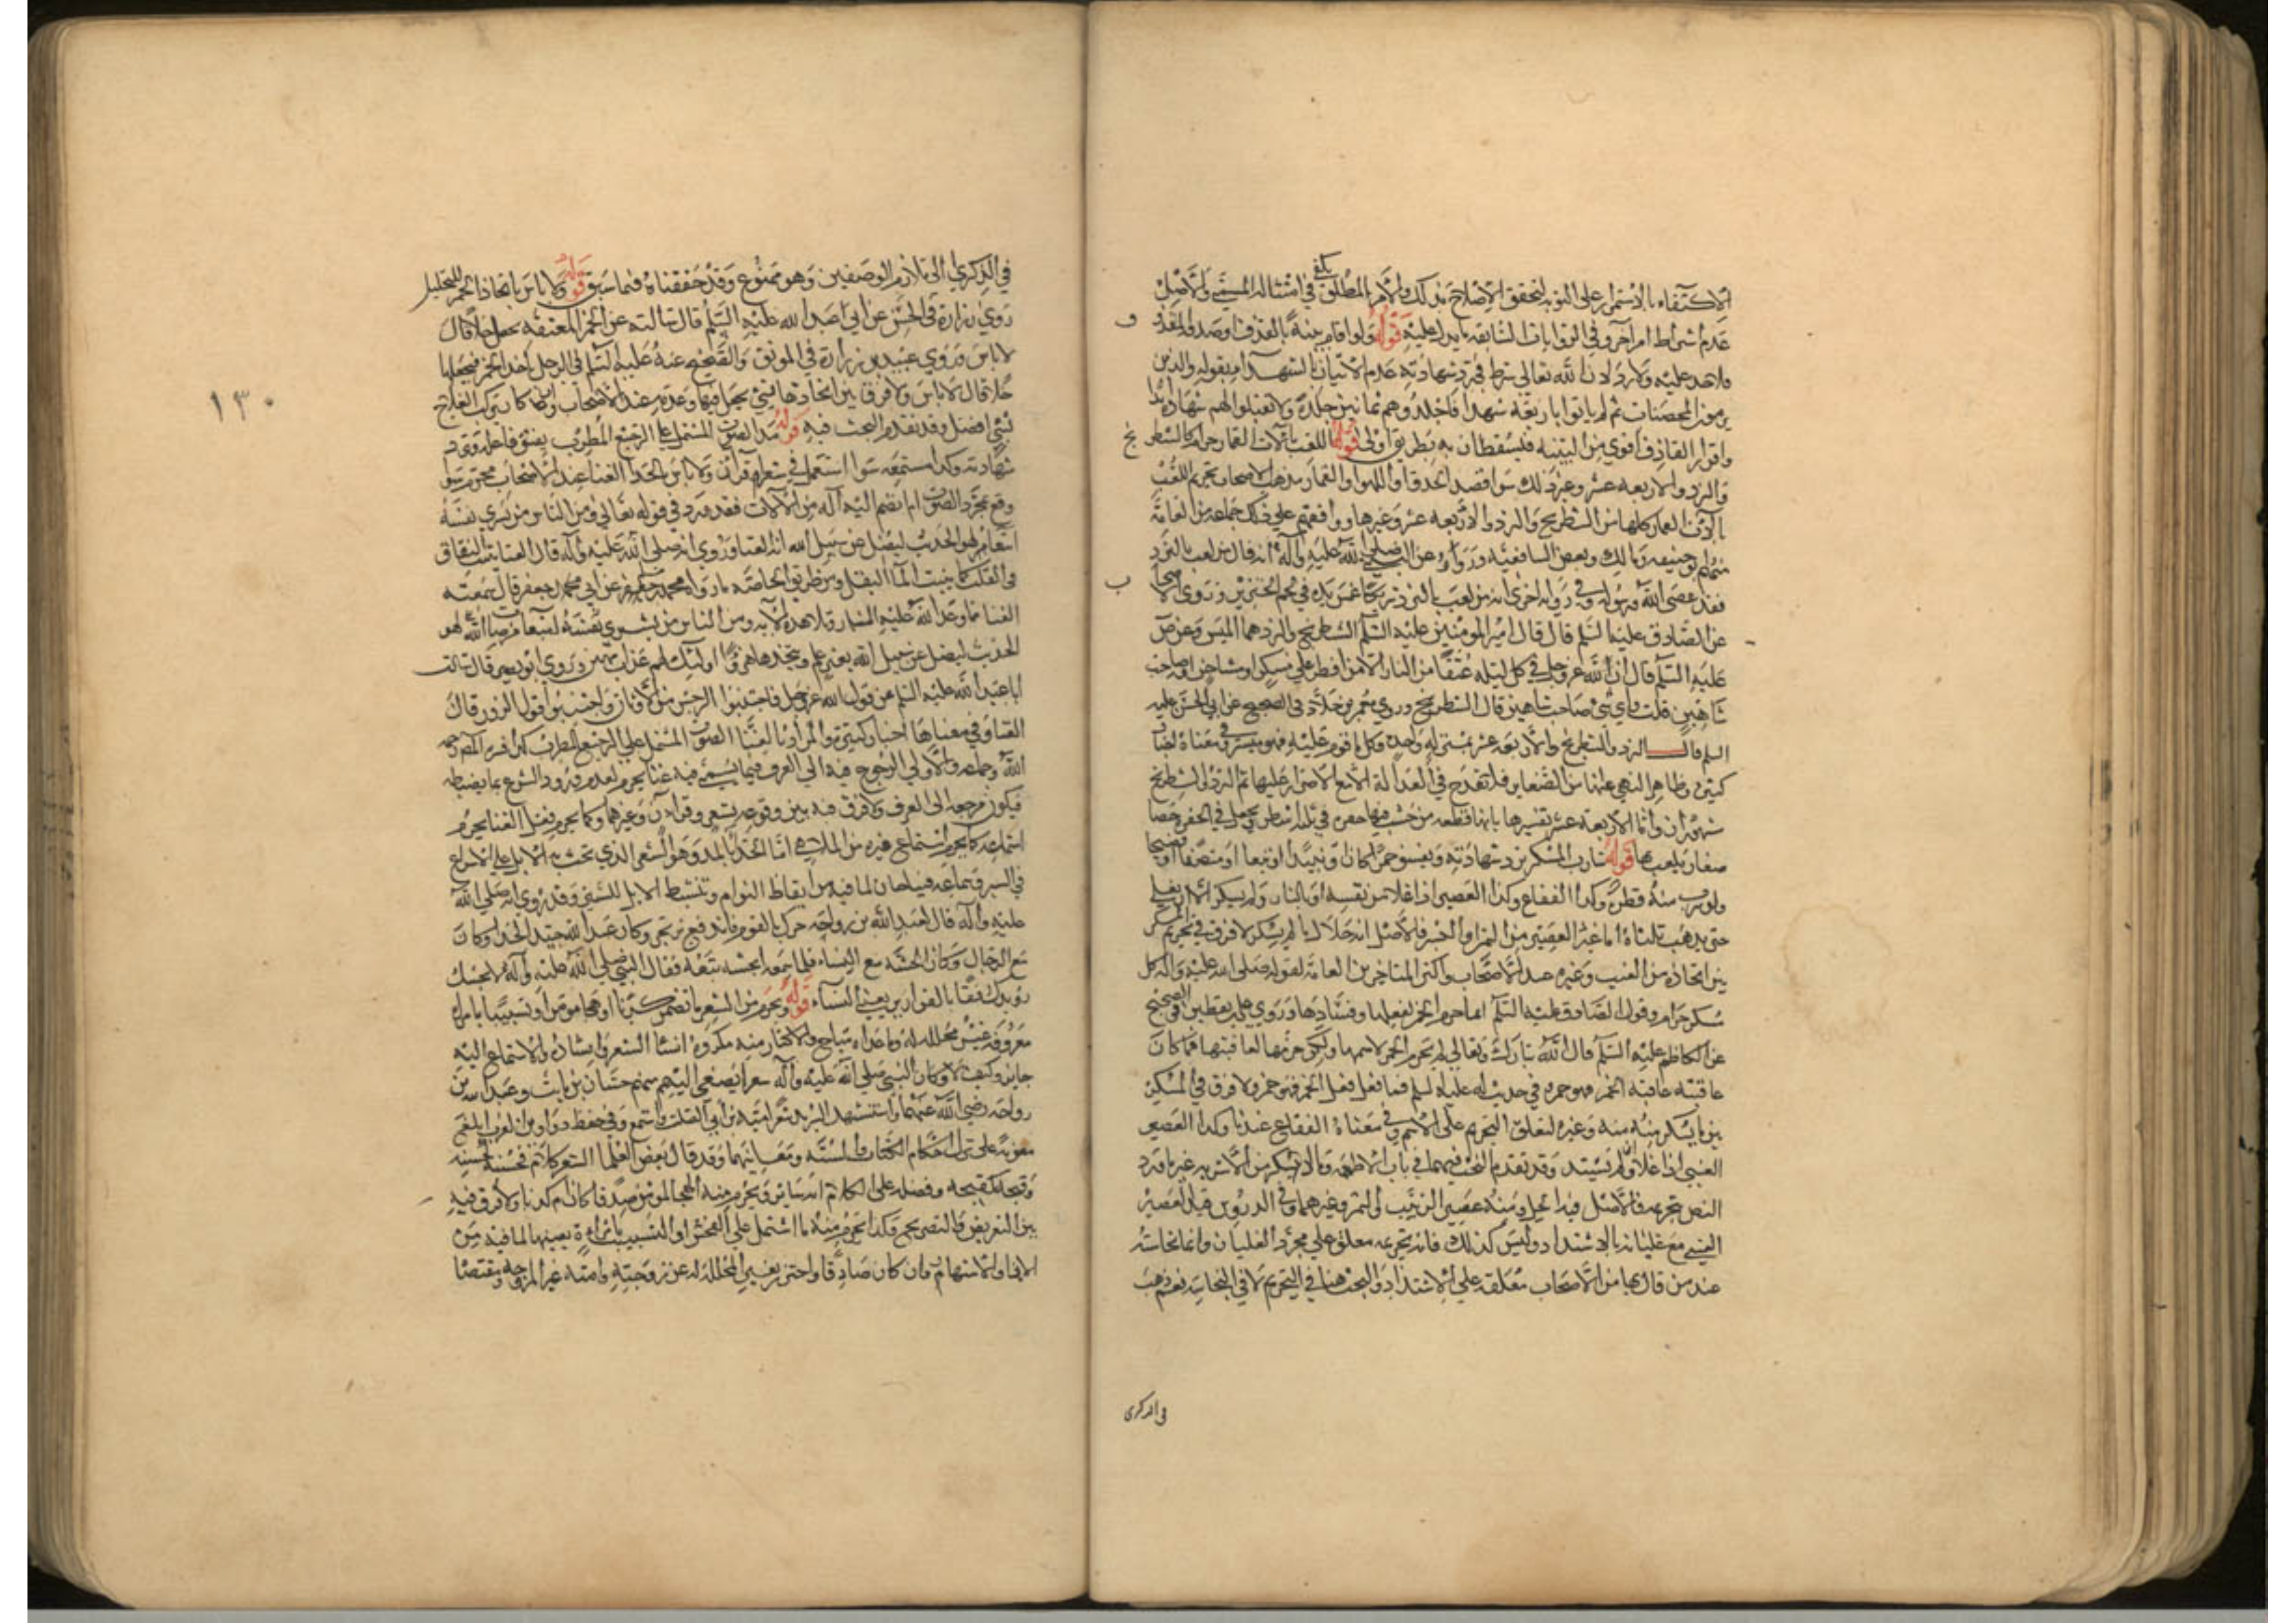 الاكتفاء بالاستمرار على التوبة لتحقق الاصلاح بذلك والامر المطلق يكفي في امتثاله المسمى والاصل
عدم اشتراط امر آخر وفي الروايات السابقة ما يدل عليه قوله ولو اقام بينة بالقذف او صدقه المقذوف
فلا حد عليه ولا رد لان الله تعالى شرط في رد شهادته عدم الاتيان بالشهداء بقوله والذين
يرمون المحصنات ثم لم ياتوا باربعة شهدا فاجلدوهم ثمانين جلدة ولا تقبلوا لهم شهادة ابدا
واقرار القاذف اقوى من البينة فيسقطان به بطريق اولى قوله اللعب بآلات القمار حرام كالشطرنج
والنرد والاربعة عشر وغير ذلك سوا قصد الحذق او اللهو او القمار مذهب الاصحاب تحريم اللعب
بآلات القمار كلها من الشطرنج والنرد والاربعة عشر وغيرها ووافقهم على ذلك جماعة من العامة
منهم ابو حنيفه ومالك وبعض الشافعيه ورووا عن النبي صلى الله عليه وآله انه قال من لعب بالنرد
فقد عصى الله ورسوله وفي رواية اخرى انه من لعب بالنرد شير فكانما غمس يده في لحم الخنزير وروى
عن الصادق عليه السلم قال قال امير المومنين عليه السلم الشطرنج والنرد هما الميسر وعنه
عليه السلم قال ان الله عز وجل في كل ليلة عتقا من النار الا من افطر على مسكر او مشاحن او صاحب
شاهين قلت واي شئ صاحب شاهين قال الشطرنج وروى معمر بن خلاد في الصحيح عن ابي الحسن عليه
السلم قال النرد والشطرنج والاربعة عشر بمنزلة واحدة وكل ما قومر عليه فهو ميسر وفي معناه اخبار
كثيرة وظاهر النهي عنها من الصغاير فلا تقدح في العدالة الا مع الاصرار عليها ثم النرد والشطرنج
مشهوران واما الاربعة عشر تفسيرها بانها قطعة من خشب فيها حفر في ثلثة اسطر يجعل في الحفر حصا
صغار يلعب بها قوله شارب المسكر ترد شهادته ويفسق خمرا كان او نبيذا او تبعا او منصفا او فضيخا
ولو شرب منه قطرة وكذا الفقاع وكذا العصير اذا غلا من نفسه او بالنار ولو لم يسكر الا ان يغلي
حتى يذهب ثلثاه اما غير العصير من التمر او البسر فالاصل انه حلال ما لم يسكر لا فرق في تحريم المسكر
بين اتخاذه من العنب وغيره عند الاصحاب واكثر المتاخرين من العامة لقوله صلى الله عليه وآله كل
مسكر حرام وقول الصادق عليه السلم انما حرم الخمر لفعلها وفسادها وروى علي بن يقطين في الصحيح
عن الكاظم عليه السلم قال ان الله تبارك وتعالى لم يحرم الخمر لاسمها ولكن حرمها لعاقبتها فما كان
عاقبته عاقبة الخمر فهو خمر وفي حديث له عليه السلم فما فعل فعل الخمر فهو خمر ولا فرق في المسكر
بين ما يسكر منه وغيره لتعلق التحريم على الاسم وفي معناه الفقاع عندنا وكذا العصير
العنبي اذا غلا ولم يشتد وقد تقدم البحث فيهما في باب الاطعمة وما لا يسكر من الاشربة غير ما ورد
النص بتحريمه فالاصل فيه الحل ومنه عصير الزبيب والتمر وغيرهما وفي الدروس قيل عصير
العنبي مع غليانه بالاشتداد وليس كذلك فانه تحريمه معلق على مجرد الغليان وانما نجاسته
عند من قال بها من الاصحاب معلقة على الاشتداد والبحث هنا في التحريم لا في النجاسة نعم ذهب
في الذكرى
١٣٠
في الذكرى الى تلازم الوصفين وهو ممنوع وقد حققناه فيما سبق قوله ولا باس باتخاذ الخمر للتخليل
روى زرارة في الحسن عن ابي عبد الله عليه السلم قال سالته عن الخمر العتيقة تجعل خلا قال
لا باس وروى عبيد بن زرارة في الموثق والصحيح عنه عليه السلم في الرجل ياخذ الخمر فيجعلها
خلا قال لا باس ولا فرق بين اتخاذها لشئ يجعل فيها وعدمه عند الاصحاب وان كان ترك العلاج
بشئ افضل وقد تقدم البحث فيه قوله مد الصوت المشتمل على الترجيع المطرب يفسق فاعله وترد
شهادته وكذا مستمعه سوا استعمل في شعر او قرآن ولا باس بالحدا الغنا عند الاصحاب محرم سوا
وقع بمجرد الصوت ام انضم اليه آلة من الآلات فقد ورد في قوله تعالى ومن الناس من يشري نفسه
ابتغا لهو الحديث ليضل عن سبيل الله انه الغنا وروى انه صلى الله عليه وآله قال الغنا ينبت النفاق
في القلب كما ينبت الما البقل ومن طريق الخاصة ما رواه محمد بن مسلم عن ابي جعفر قال سمعته
الغنا مما وعد الله عليه النار وتلا هذه الآية ومن الناس من يشتري لهو
الحديث ليضل عن سبيل الله بغير علم ويتخذها هزوا اولئك لهم عذاب مهين وروى ابو بصير قال سالت
ابا عبد الله عليه السلم عن قول الله عز وجل فاجتنبوا الرجس من الاوثان واجتنبوا قول الزور قال
الغنا وفي معناها اخبار كثيرة والمراد بالغنا الصوت المشتمل على الترجيع المطرب كذا فسره المصنف رحمه
الله وجماعة والاولى الرجوع فيه الى العرف فما يسمى فيه غنا يحرم لعدم ورود الشرع بما يضبطه
فيكون مرجعه الى العرف ولا فرق فيه بين وقوعه بشعر وقرآن وغيرهما وكما يحرم فعل الغنا يحرم
استماعه كما يحرم استماع غيره من الملاهي اما الحدا بالمد وهو الشعر الذي تحث به الابل على الاسراع
في السير وسماعه فمباحان لما فيه من ايقاظ النوام وتنشيط الابل للسير وقد روى انه صلى الله
عليه وآله قال لعبد الله بن رواحة حرك بالقوم فاندفع يرتجز وكان عبد الله جيد الحدا وكان
مع الرجال وكان انجشة مع النساء فلما سمعه انجشة تبعه فقال النبي صلى الله عليه وآله لانجشة
رويدك رفقا بالقوارير يعني النساء قوله ويحرم من الشعر ما تضمن كذبا او هجا مومن او تشبيبا بامراة
معروفة غير محللة له وما عداه مباح والاكثار منه مكروه انشا الشعر وانشاده والاستماع اليه
جايز وكيف لا وكان النبي صلى الله عليه وآله شعرا يصغي اليهم منهم حسان بن ثابت وعبد الله بن
رواحة رضي الله عنهما واستنشد الشريد شعر امية بن ابي الصلت واستمع وفي حفظ دواوين العرب ابلغ
معونة على درك احكام الكتاب والسنة ومعانيهما وقد قال بعض العلما الشعر كلام فحسنه كحسنه
وقبيحه كقبيحه وفضله على الكلام انه ساير ويحرم منه الهجا لمومن صدقا كان ام كذبا ولا فرق فيه
بين التعريض والتصريح وكذا يحرم منه ما اشتمل على الفحش او التشبيب بامراة بعينها لما فيه من
الايذا والاشتهار وان كان صادقا واحترز بغير المحللة له عن زوجته وامته غير المزوجة ومقتضا